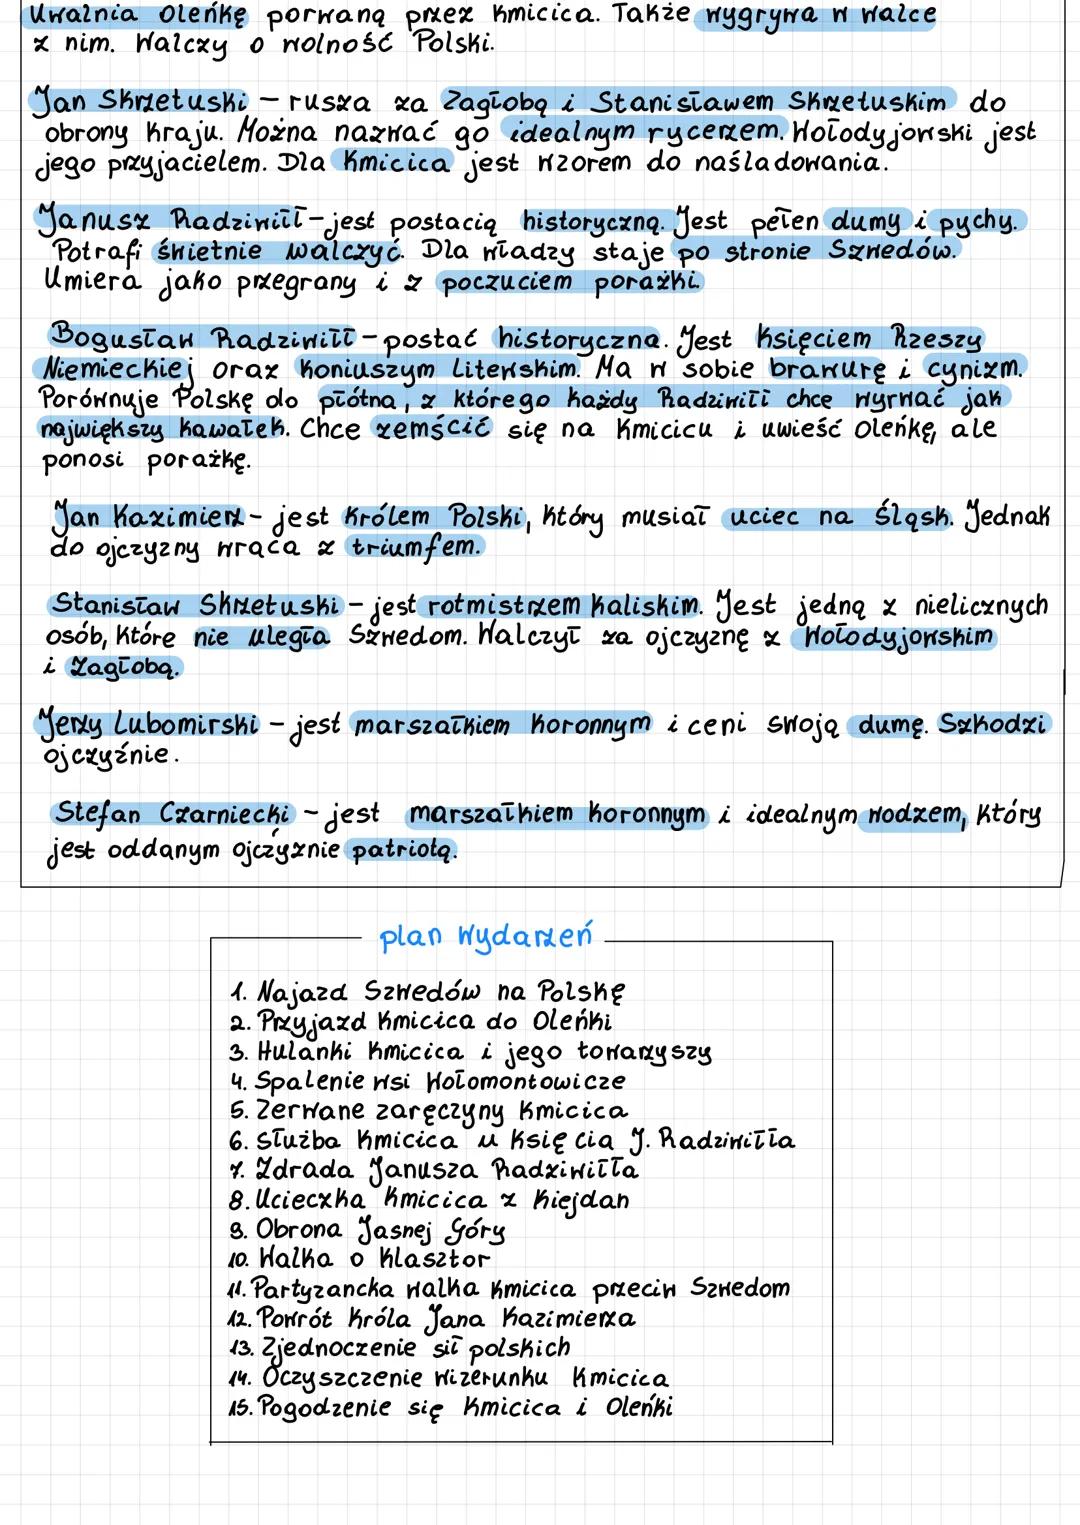 Uwalnia Oleńkę porwaną przez Kmicica. Także wygrywa w walce
z nim. Walczy o wolność Polski.
Jan Skrzetuski – rusza za Zagłobą i Stanisławem Skrzetuskim do
obrony kraju. Można nazwać go idealnym rycerzem. Wołodyjowski jest
jego przyjacielem. Dla Kmicica jest wzorem do naśladowania.
Janusz Radziwiłł – jest postacią historyczną. Jest pełen dumy i pychy.
Potrafi świetnie walczyć. Dla władzy staje po stronie Szwedów.
Umiera jako przegrany i z poczuciem porażki.
Bogusław Radziwiłł – postać historyczna. Jest Księciem Rzeszy
Niemieckiej oraz koniuszym Litewskim. Ma w sobie brawurę i cynizm.
Porównuje Polskę do płótna, z którego każdy Radziwiłł chce wyrwać jak
największy kawałek. Chce zemścić się na Kmicicu i uwieść Oleńkę, ale
ponosi porażkę.
Jan Kazimierz – jest Królem Polski, który musiał uciec na Śląsk. Jednak
do ojczyzny wraca z triumfem.
Stanisław Skrzetuski – jest rotmistrzem kaliskim. Jest jedną z nielicznych
osób, które nie uległa Szwedom. Walczył za ojczyznę z Wołodyjowskim
i Zagłobą.
Jerzy Lubomirski – jest marszałkiem koronnym i ceni swoją dumę. Szkodzi
ojczyźnie.
Stefan Czarniecki – jest marszałkiem koronnym i idealnym wodzem, który
jest oddanym ojczyznie patriotą.
plan wydarzeń
1. Najazd Szwedów na Polskę
2. Przyjazd Kmicica do Oleńki
3. Hulanki Kmicica i jego towarzyszy
4. Spalenie wsi Wołomontowicze
5. Zerwane zaręczyny Kmicica
6. Służba Kmicica u księcia J. Radziwiłła
7. Zdrada Janusza Radziwiłła
8. Ucieczka Kmicica z Kiejdan
9. Obrona Jasnej Góry
10. Walka o klasztor
11. Partyzancka walka Kmicica przeciw Szwedom
12. Powrót króla Jana Kazimierza
13. Zjednoczenie sił polskich
14. Oczyszczenie wizerunku Kmicica
15. Pogodzenie się Kmicica i Oleńki